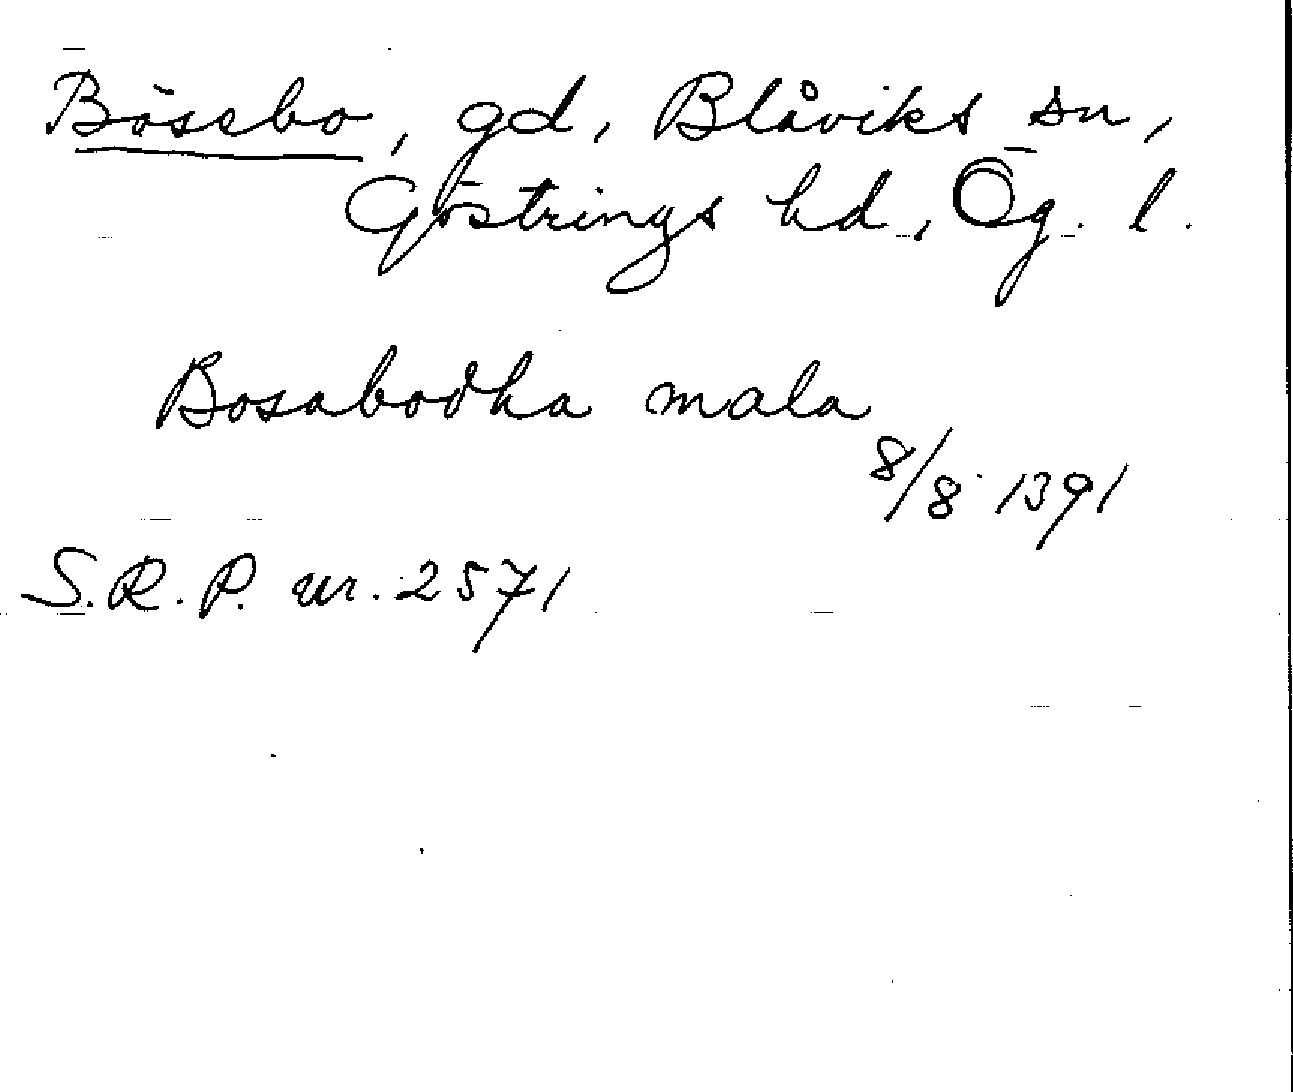 Bössbo, gd, Blåviks sn,
Göstrings hd, Ög. l.
Bosabodha mala
8/8 1391
S.R.P. nr. 2571